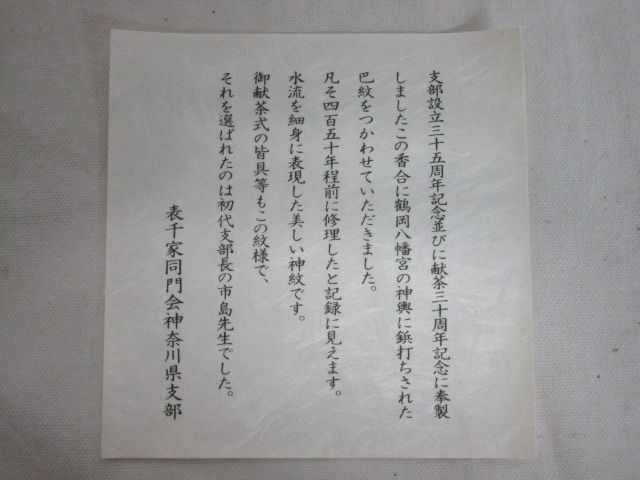 支部設立三十五周年記念並びに献茶三十周年記念に奉製
しましたこの香合に鶴岡八幡宮の神輿に鋲打ちされた
巴紋をつかわせていただきました。
凡そ四百五十年程前に修理したと記録に見えます。
水流を細身に表現した美しい神紋です。
御献茶式の皆具等もこの紋様で、
それを選ばれたのは初代支部長の市島先生でした。
表千家同門会神奈川県支部